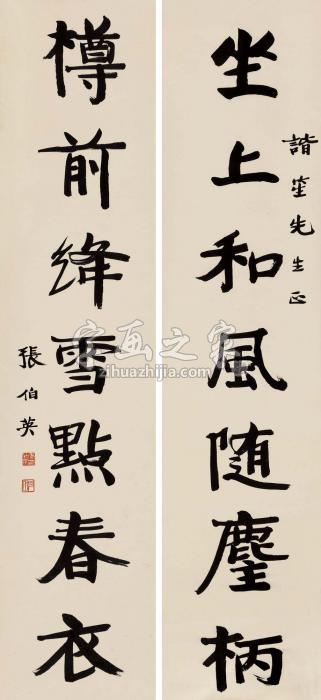 坐上和風随麈柄
諧笙先生正
樽前絳雪點春衣
張伯英
字画之家
zihuazhijia.com